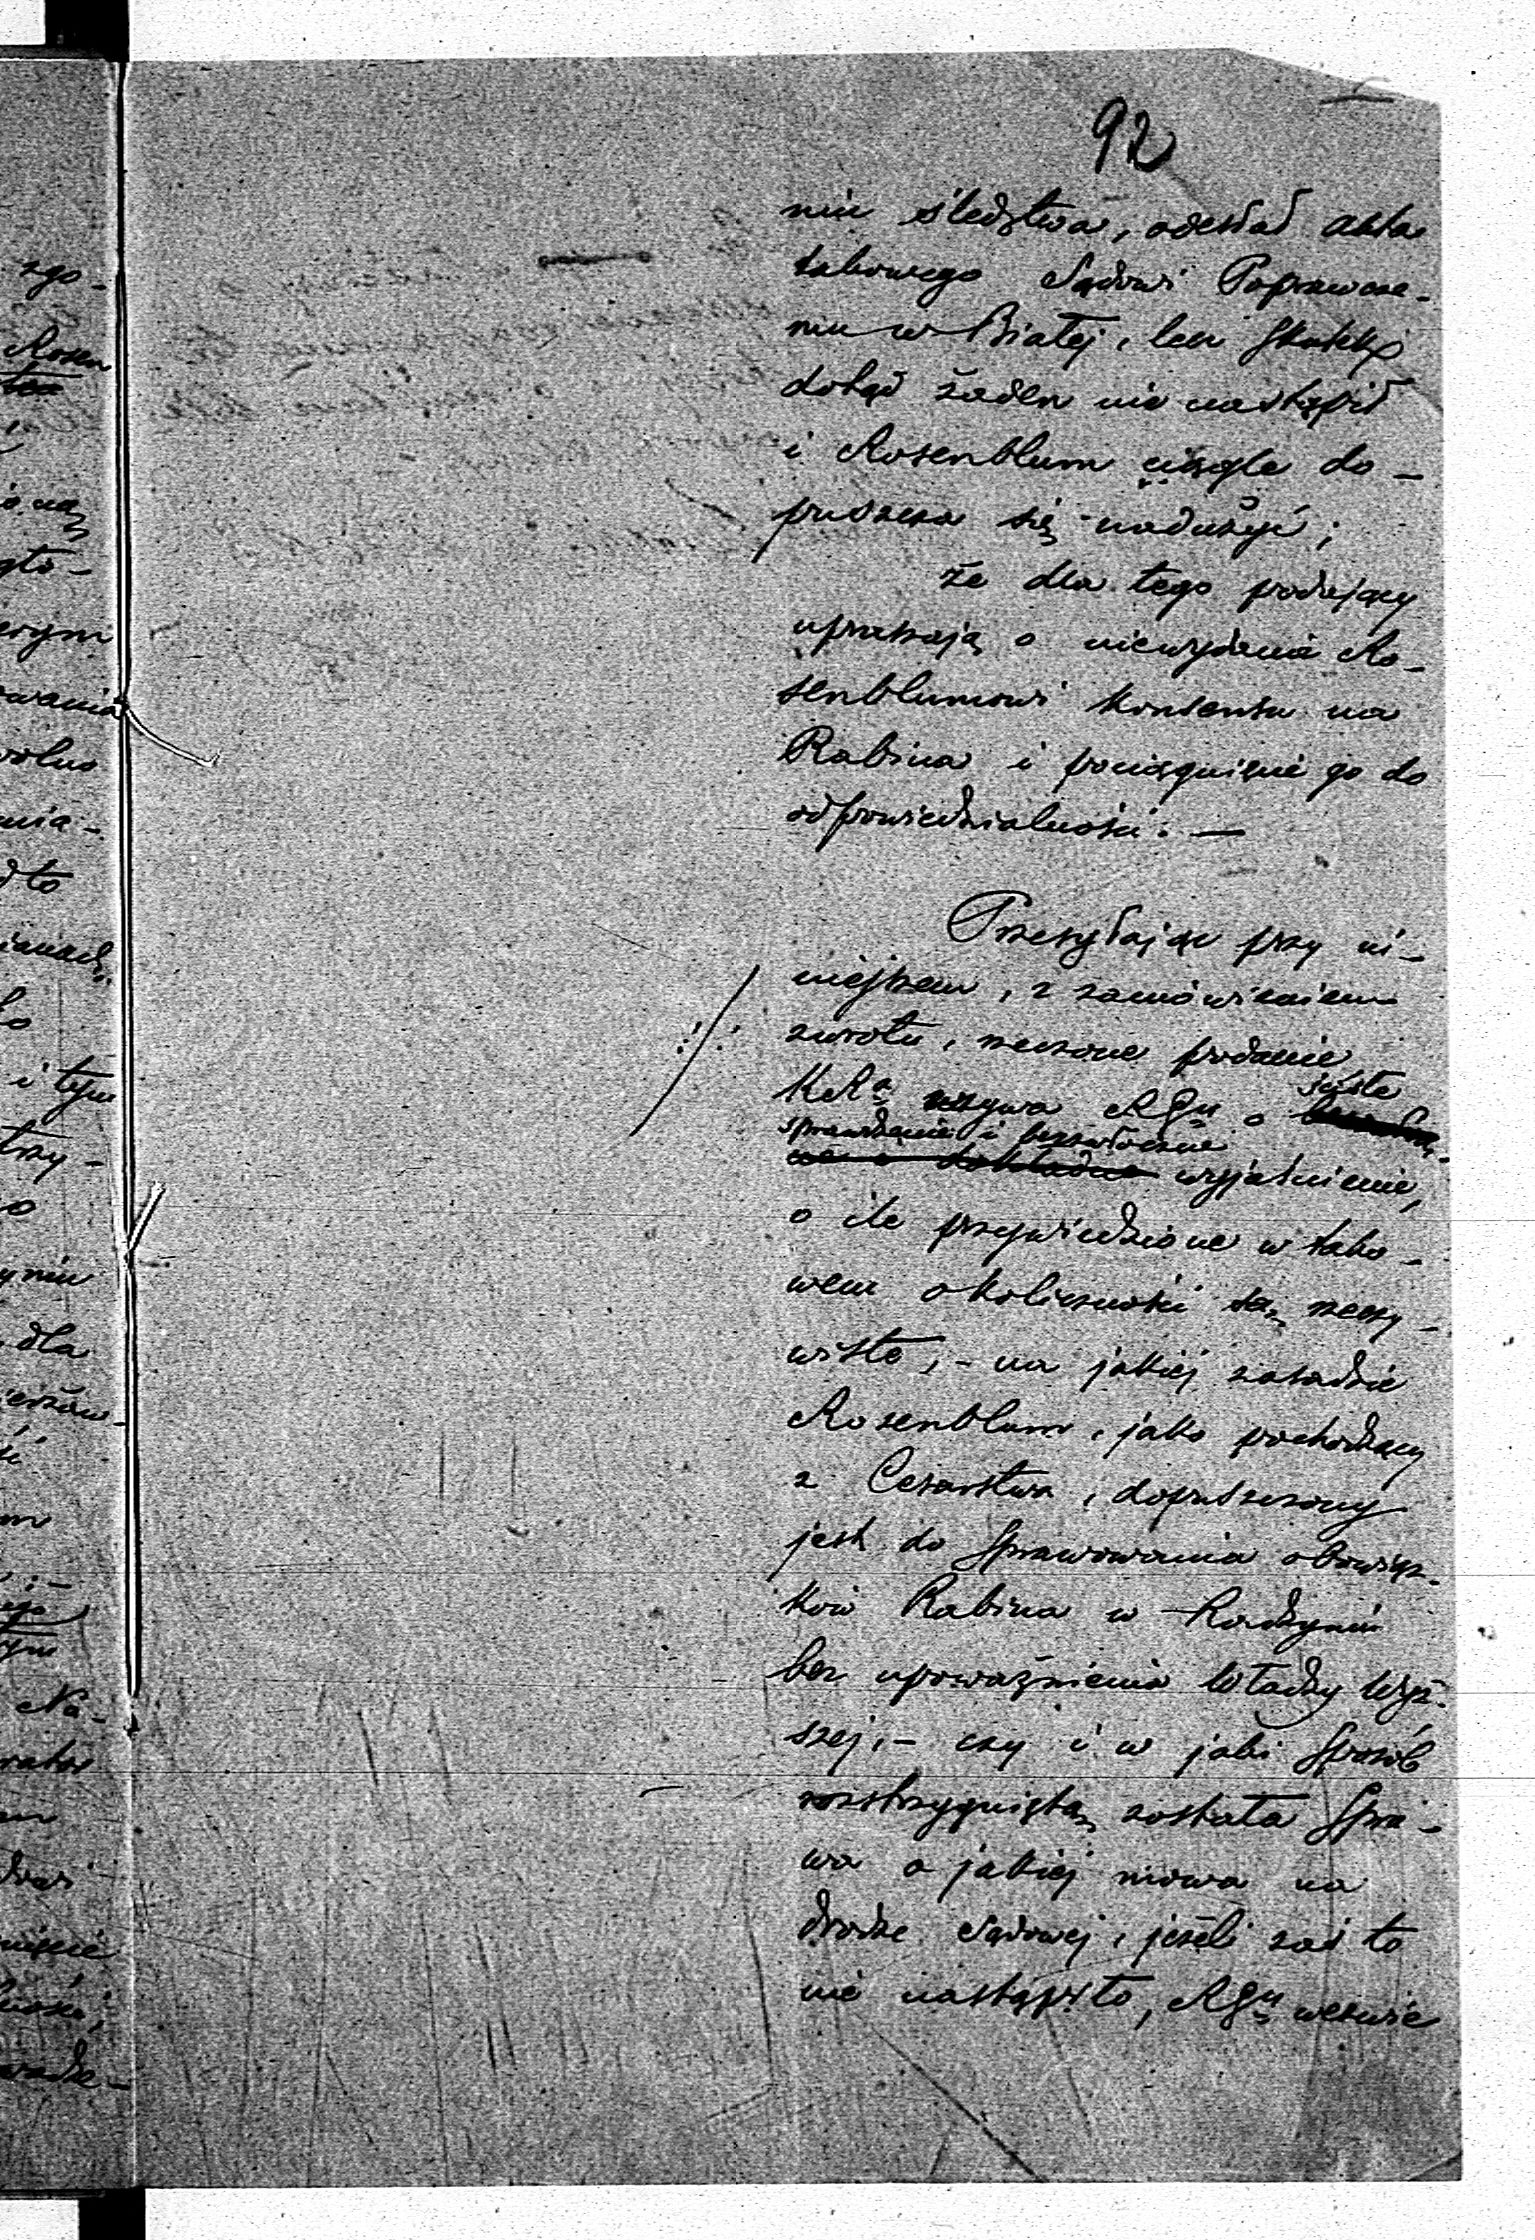 92
niu śledztwa, odesłał akta
takowego Sądowi Poprawcze-
mu w Białej, lecz skutek
dotąd żaden nie nastąpił
i Rosenblum ciągle do-
puszcza się nadużyć;
że dla tego podający
upraszają o niewydanie Ro-
senblumowi konsensu na
Rabina i pociągnięcie go do
odpowiedzialności. —
Przesyłając przy ni-
niejszem, z zamówieniem
zwrotu, rzeczone podanie
KRą wzywa RGu o
ścisłe
sprawdzenie i bezzwłoczne
we a dokładne wyjaśnienie,
o ile przywiedzione w tako-
wem okoliczności są rzeczy-
wiste, - na jakiej zasadzie
Rosenblum, jako pochodzący
z Cesarstwa, dopuszczony
jest do sprawowania obowiąz-
ków Rabina w Radzyniu
bez upoważnienia Władzy Wyż-
szej, - czy i w jaki sposób
rozstrzygniętą została spra-
wa o jakiej mowa na
drodze Sądowej, jeżeli zaś to
nie nastąpiło, RGu wezwie
zgo-
Rosen
wania
wolno
nia-
dto
i tym
trzy-
niu
dla
Na-